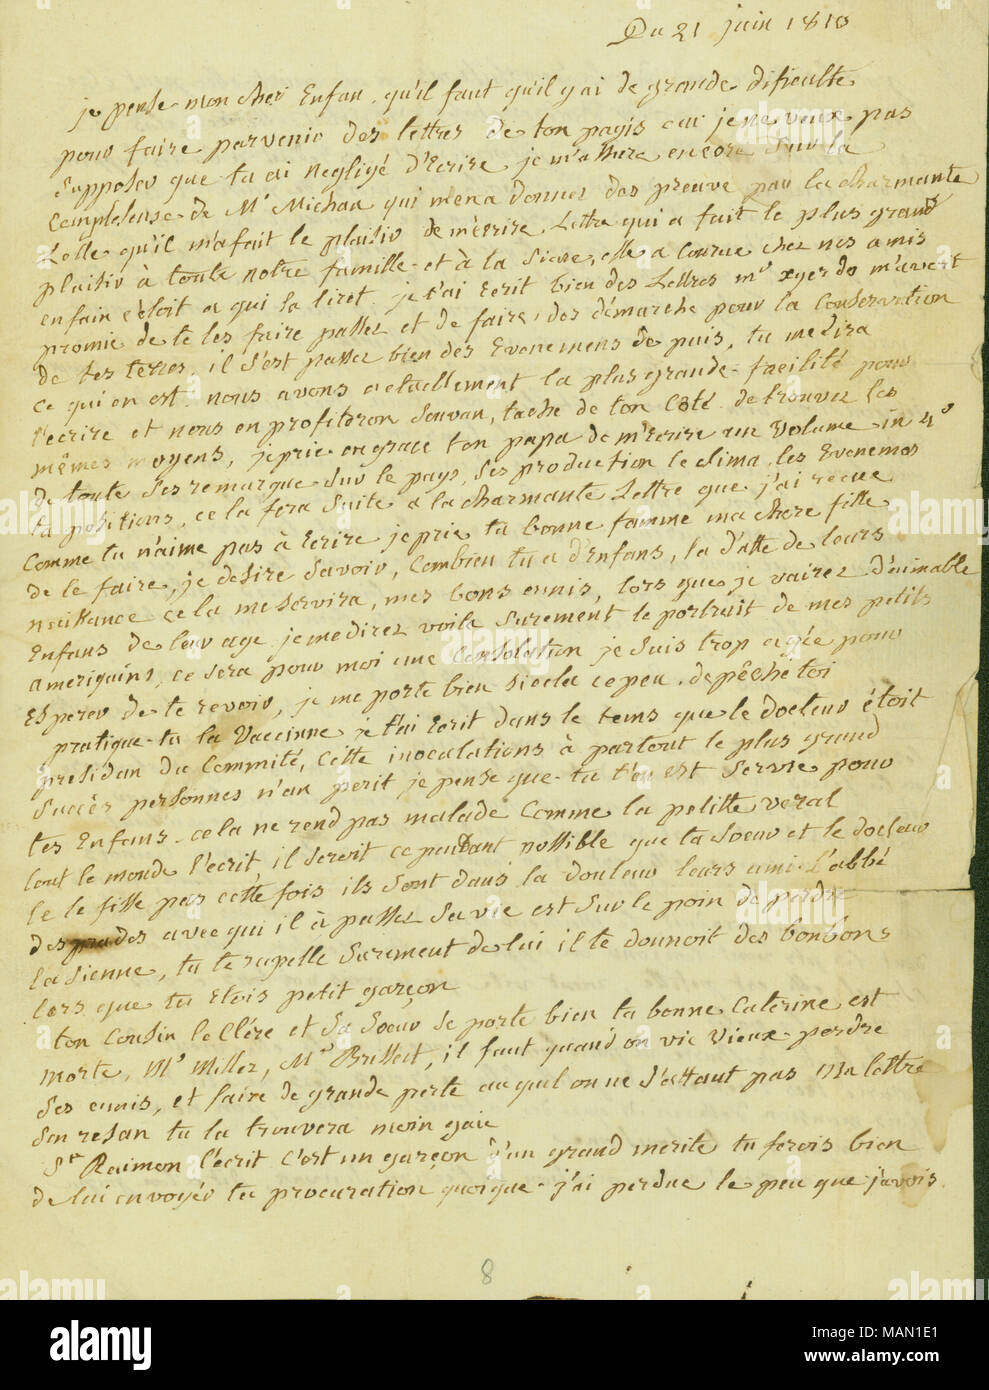 Du 21 juin 1810
je pense mon cher Enfan qu'il faut qu'il y ai de grande dificulté
pour faire parvenir des lettres de ton payis car je ne veux pas
supposer que tu ai negligé d'Ecrire, je m'assure encore sur la
complesense de Mr Michau qui m'en a donner des preuve par la charmante
Lettre qu'il m'a fait le plaisir de m'ecrire, Lettre qui a fait le plus grand
plaisir à toute notre famille et à la Siene, elle a courue chez nos amis
enfain c'étoit a qui la liret. je t'ai Ecrit bien des Lettres mr m'avert
promie de te les faire passer et de faire des démarche pour la Conservation
de tes terres, il s'est passer bien des Evenemens de puis, tu me dira
ce qui en est. nous avons actuellement la plus grande facilité pour
t'ecrire et nous en profitron souvan, tache de ton Côté de trouver les
mêmes moyens, je prie en grace ton papa de m'Ecrire un Volume in 4o
de toute ses remarque sur le pays, ses production le clima, les Evenemos
ta positions, ce la fera suite a la charmante Lettre que j'ai recue
Comme tu n'aime pas à Ecrire je prie ta bonne famme ma chere fille
de le faire, je desire savoir, Combien tu a d'Enfans, la datte de leurs
naissance ce la me servira, mes bons ennis, lors que je vairez d'aimable
Enfans de leur age je me direz voila surement le portrait de mes petits
ameriquains, ce sera pour moi une Consolation je suis trop agée pour
Esperer de te revoir, je me porte bien si cela ce peu. depêche toi
pratique-tu la Vaccinne je t'ai Ecrit dans le tems que le docteur étoit
presidan du Committé, Cette inoculations à partout le plus grand
Succès personnes n'an perit je pense que tu t'en est servie pour
tes Enfans. cela ne rend pas malade Comme la petitte verol
tout le monde t'écrit, il seroit cependant possible que ta Soeur et le docteur
ne le fisse pas cette fois ils sont dans la douleur leurs ami l'abbé
des prades avec qui il à passer sa vie est sur le poin de perdre
la sienne, tu te rapelle surement de lui il te dounoit des bonbons
lors que tu Etois petit garçon
ton Cousin le Clére et sa Soeur se porte bien ta bonne Caterine est
morte, Mr Miller, Mr Brissect, il faut quand on vie Vieux perdre
ses ennis, et faire de grande perte au quel on ne s'attant pas Ma lettre
s'en resan tu la trouvera moin gaie
St Raimon t'écrit c'est un garçon d'un grand merite tu ferois bien
de lui envoyér ta procuration quoique j'ai perdue le peu que j'avois
8
alamy stock photo
MAN1E1
www.alamy.com